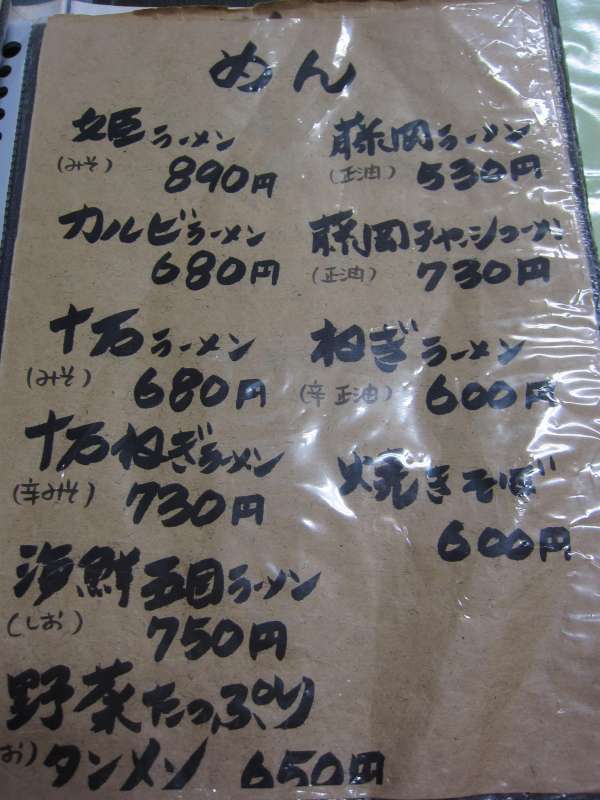 めん
姫ラーメン
(みそ) 890円
カルビラーメン
680円
十万ラーメン
(みそ) 680円
十万ねぎラーメン
(辛みそ) 730円
海鮮五目ラーメン
(しお) 750円
野菜たっぷり
お) タンメン 650円
藤岡ラーメン
(正油) 530円
藤岡チャーシューメン
(正油) 730円
ねぎラーメン
(辛正油) 600円
焼きそば
600円